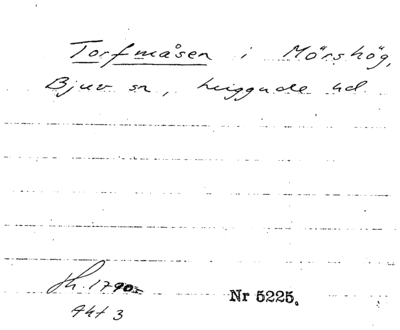 Torfmåsen i Mörshög,
Bjuv sn, huggude ud
Hh. 1790
Akt 3
Nr 5225.